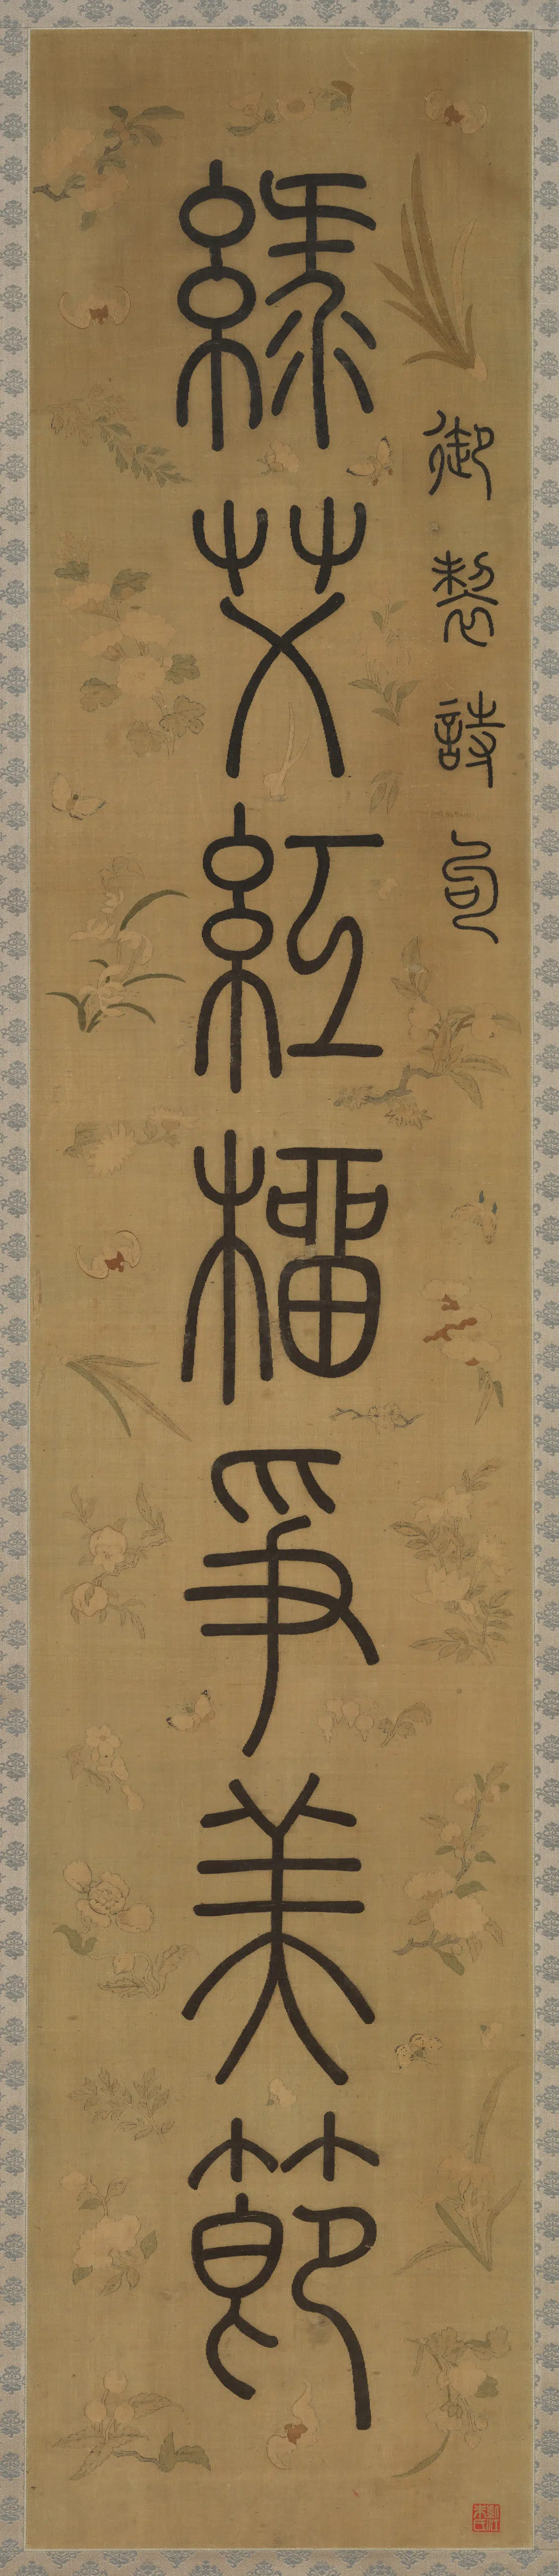 御製詩句
綠艾紅榴爭美節